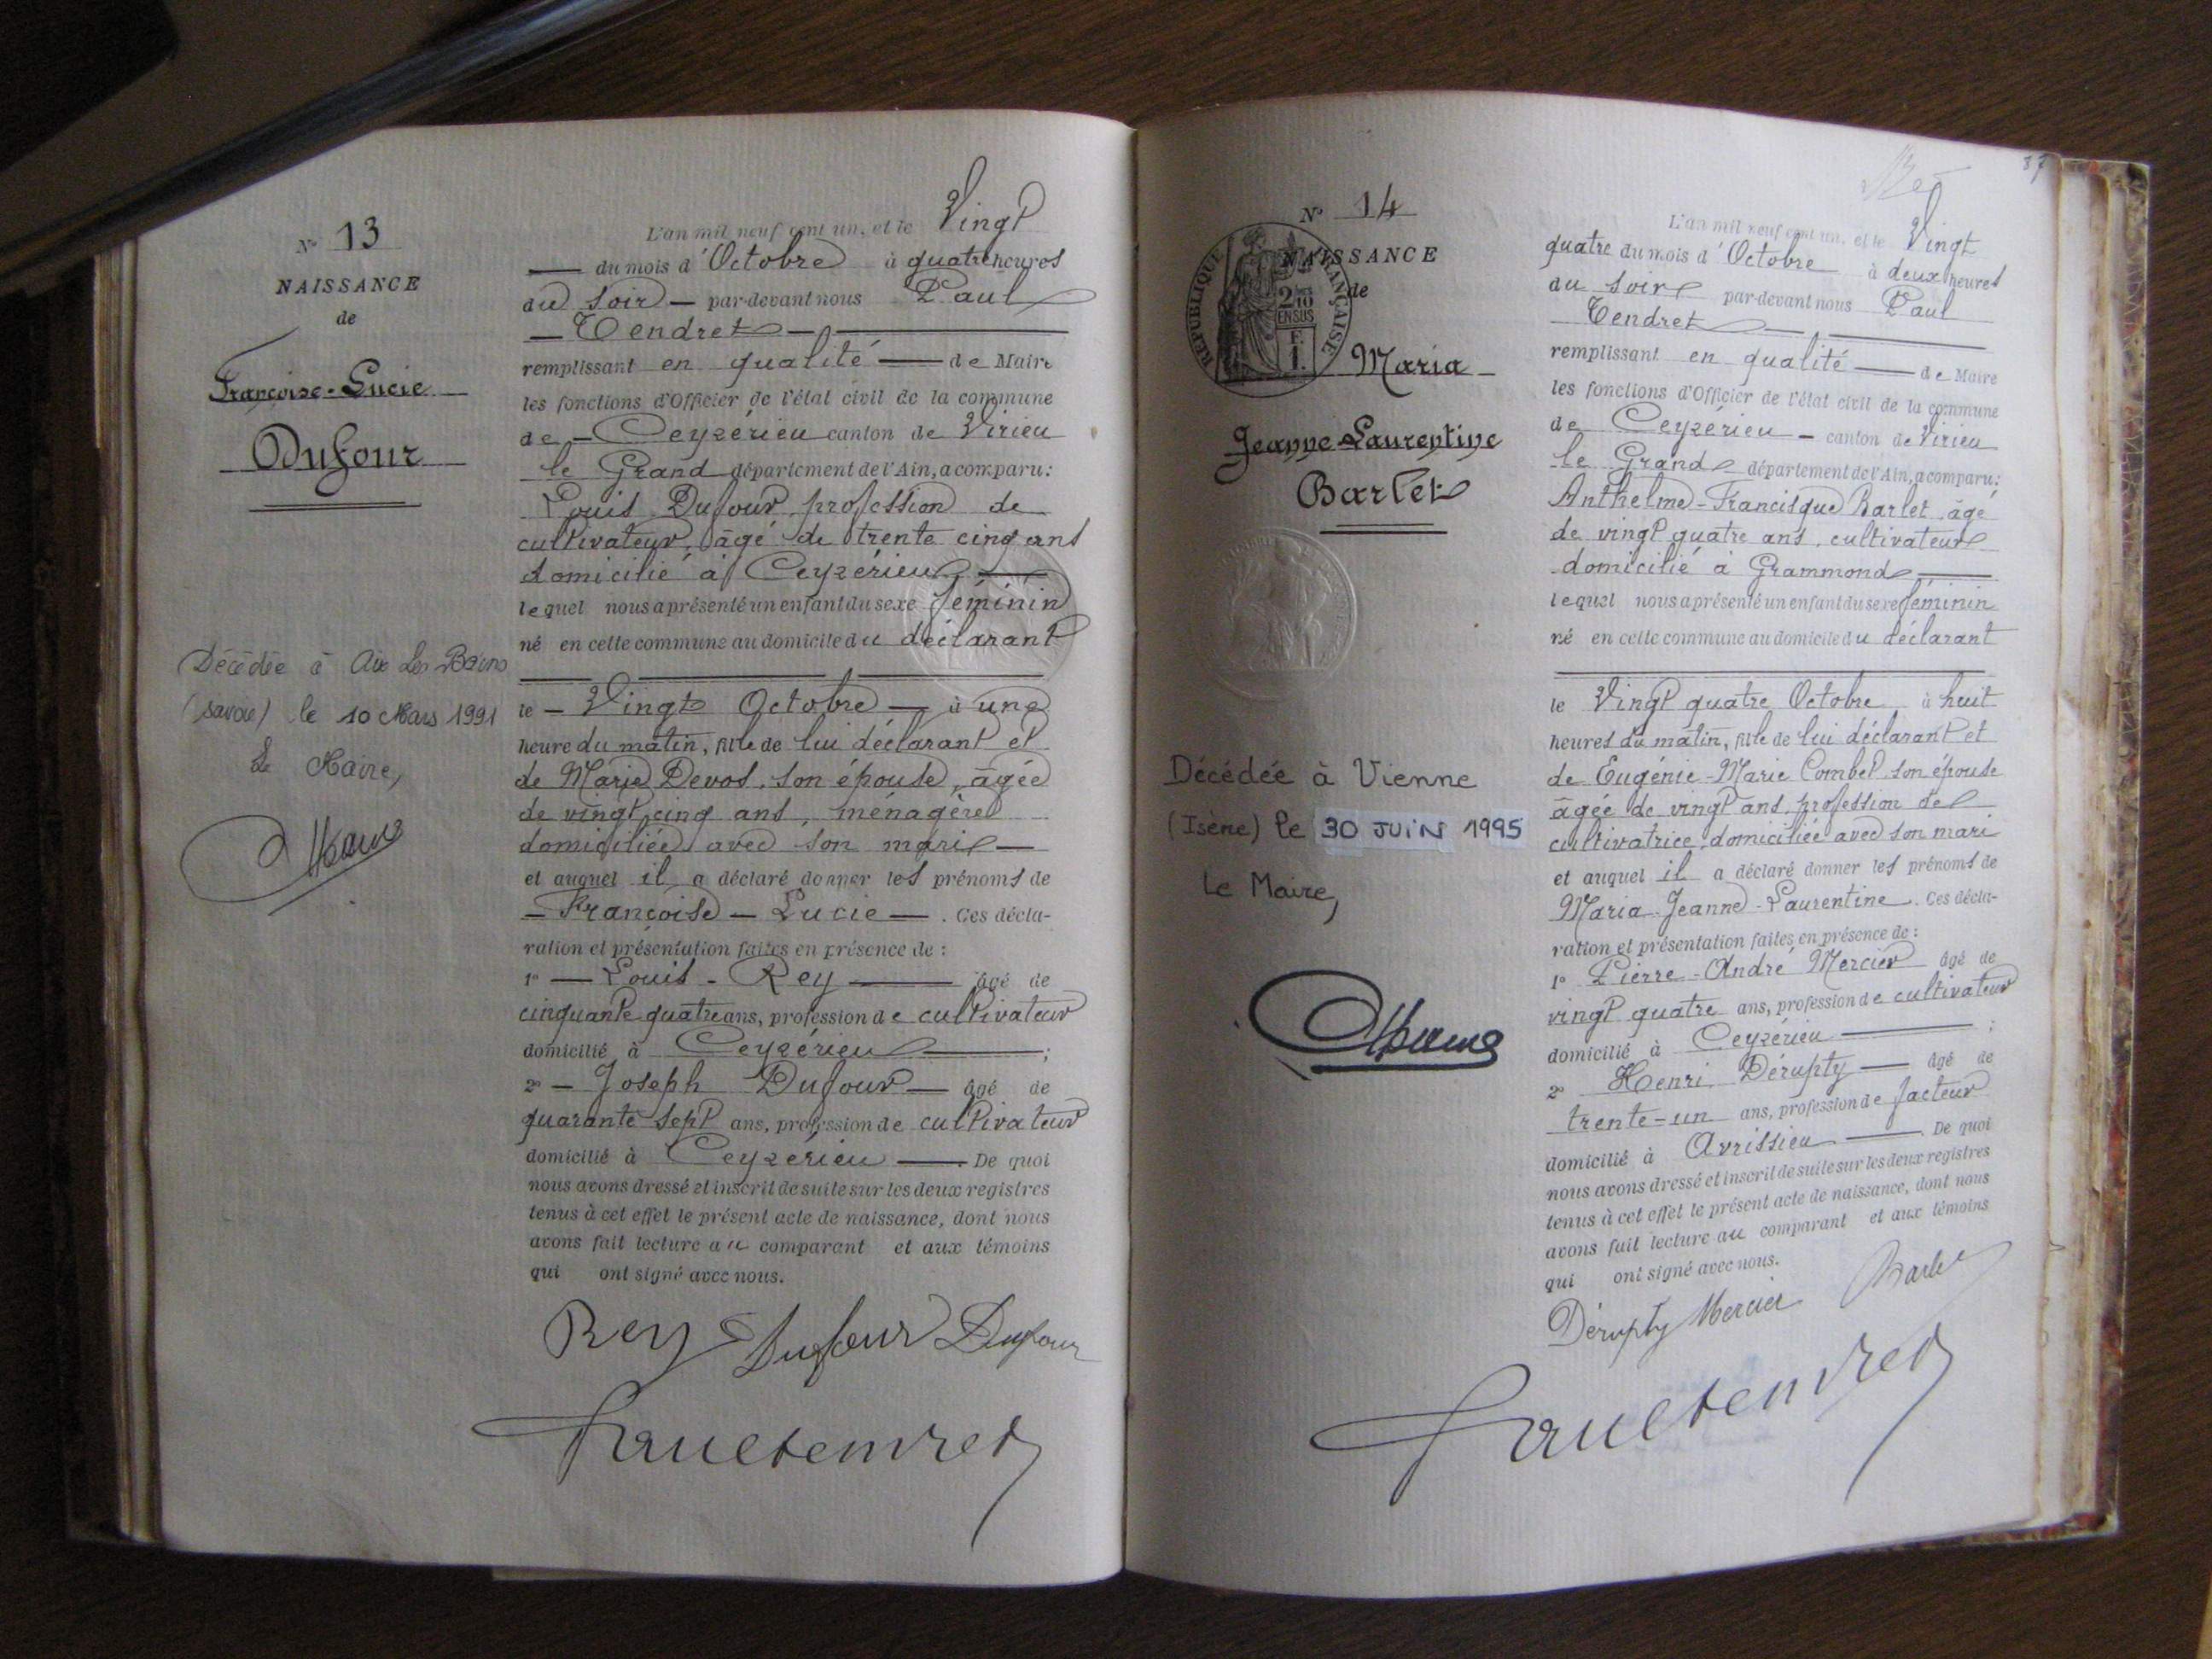 N° 13
NAISSANCE
de
Françoise-Lucie
Dufour
Décédée à Aix Les Bains
(Savoie) le 10 Mars 1991
Le Maire,
L'an mil neuf cent un, et le Vingt
du mois d'Octobre à quatre heures
du soir par-devant nous Paul
Tendret
remplissant en qualité de Maire
les fonctions d'Officier de l'état civil de la commune
de Ceyzérieu canton de Virieu
le Grand département de l'Ain, a comparu:
Louis Dufour profession de
cultivateur, âgé de trente cinq ans
domicilié à Ceyzérieu
lequel nous a présenté un enfant du sexe féminin
né en cette commune au domicile du déclarant
le Vingt Octobre à une
heure du matin, fille de lui déclarant et
de Marie Devos, son épouse, âgée
de vingt cinq ans, ménagère
domiciliée avec son mari
et auquel il a déclaré donner les prénoms de
Françoise - Lucie. Ces décla-
ration et présentation faites en présence de :
1° Louis - Rey âgé de
cinquante quatre ans, profession de cultivateur
domicilié à Ceyzérieu ;
2° Joseph Dufour âgé de
quarante sept ans, profession de cultivateur
domicilié à Ceyzérieu . De quoi
nous avons dressé et inscrit de suite sur les deux registres
tenus à cet effet le présent acte de naissance, dont nous
avons fait lecture au comparant et aux témoins
qui ont signé avec nous.
Rey Dufour Dufour
Paul Tendret
87
N° 14
NAISSANCE
de
RÉPUBLIQUE FRANÇAISE
2/10 EN SUS
F.
1.
Maria
Jeanne-Laurentine
Barlet
Décédée à Vienne
(Isère) le 30 JUIN 1995
Le Maire,
L'an mil neuf cent un, et le Vingt
quatre du mois d'Octobre à deux heures
du soir par-devant nous Paul
Tendret
remplissant en qualité de Maire
les fonctions d'Officier de l'état civil de la commune
de Ceyzérieu - canton de Virieu
le Grand département de l'Ain, a comparu:
Anthelme-Francisque Barlet, âgé
de vingt quatre ans, cultivateur
domicilié à Grammond
lequel nous a présenté un enfant du sexe féminin
né en cette commune au domicile du déclarant
le Vingt quatre Octobre à huit
heures du matin, fille de lui déclarant et
de Eugénie-Marie Combet, son épouse
âgée de vingt ans, profession de
cultivatrice, domiciliée avec son mari
et auquel il a déclaré donner les prénoms de
Maria-Jeanne-Laurentine. Ces décla-
ration et présentation faites en présence de :
1° Pierre-André Mercier âgé de
vingt quatre ans, profession de cultivateur
domicilié à Ceyzérieu ;
2° Henri Dérupty âgé de
trente-un ans, profession de facteur
domicilié à Avrissieu . De quoi
nous avons dressé et inscrit de suite sur les deux registres
tenus à cet effet le présent acte de naissance, dont nous
avons fait lecture au comparant et aux témoins
qui ont signé avec nous.
Dérupty Mercier Barlet
Paul Tendret